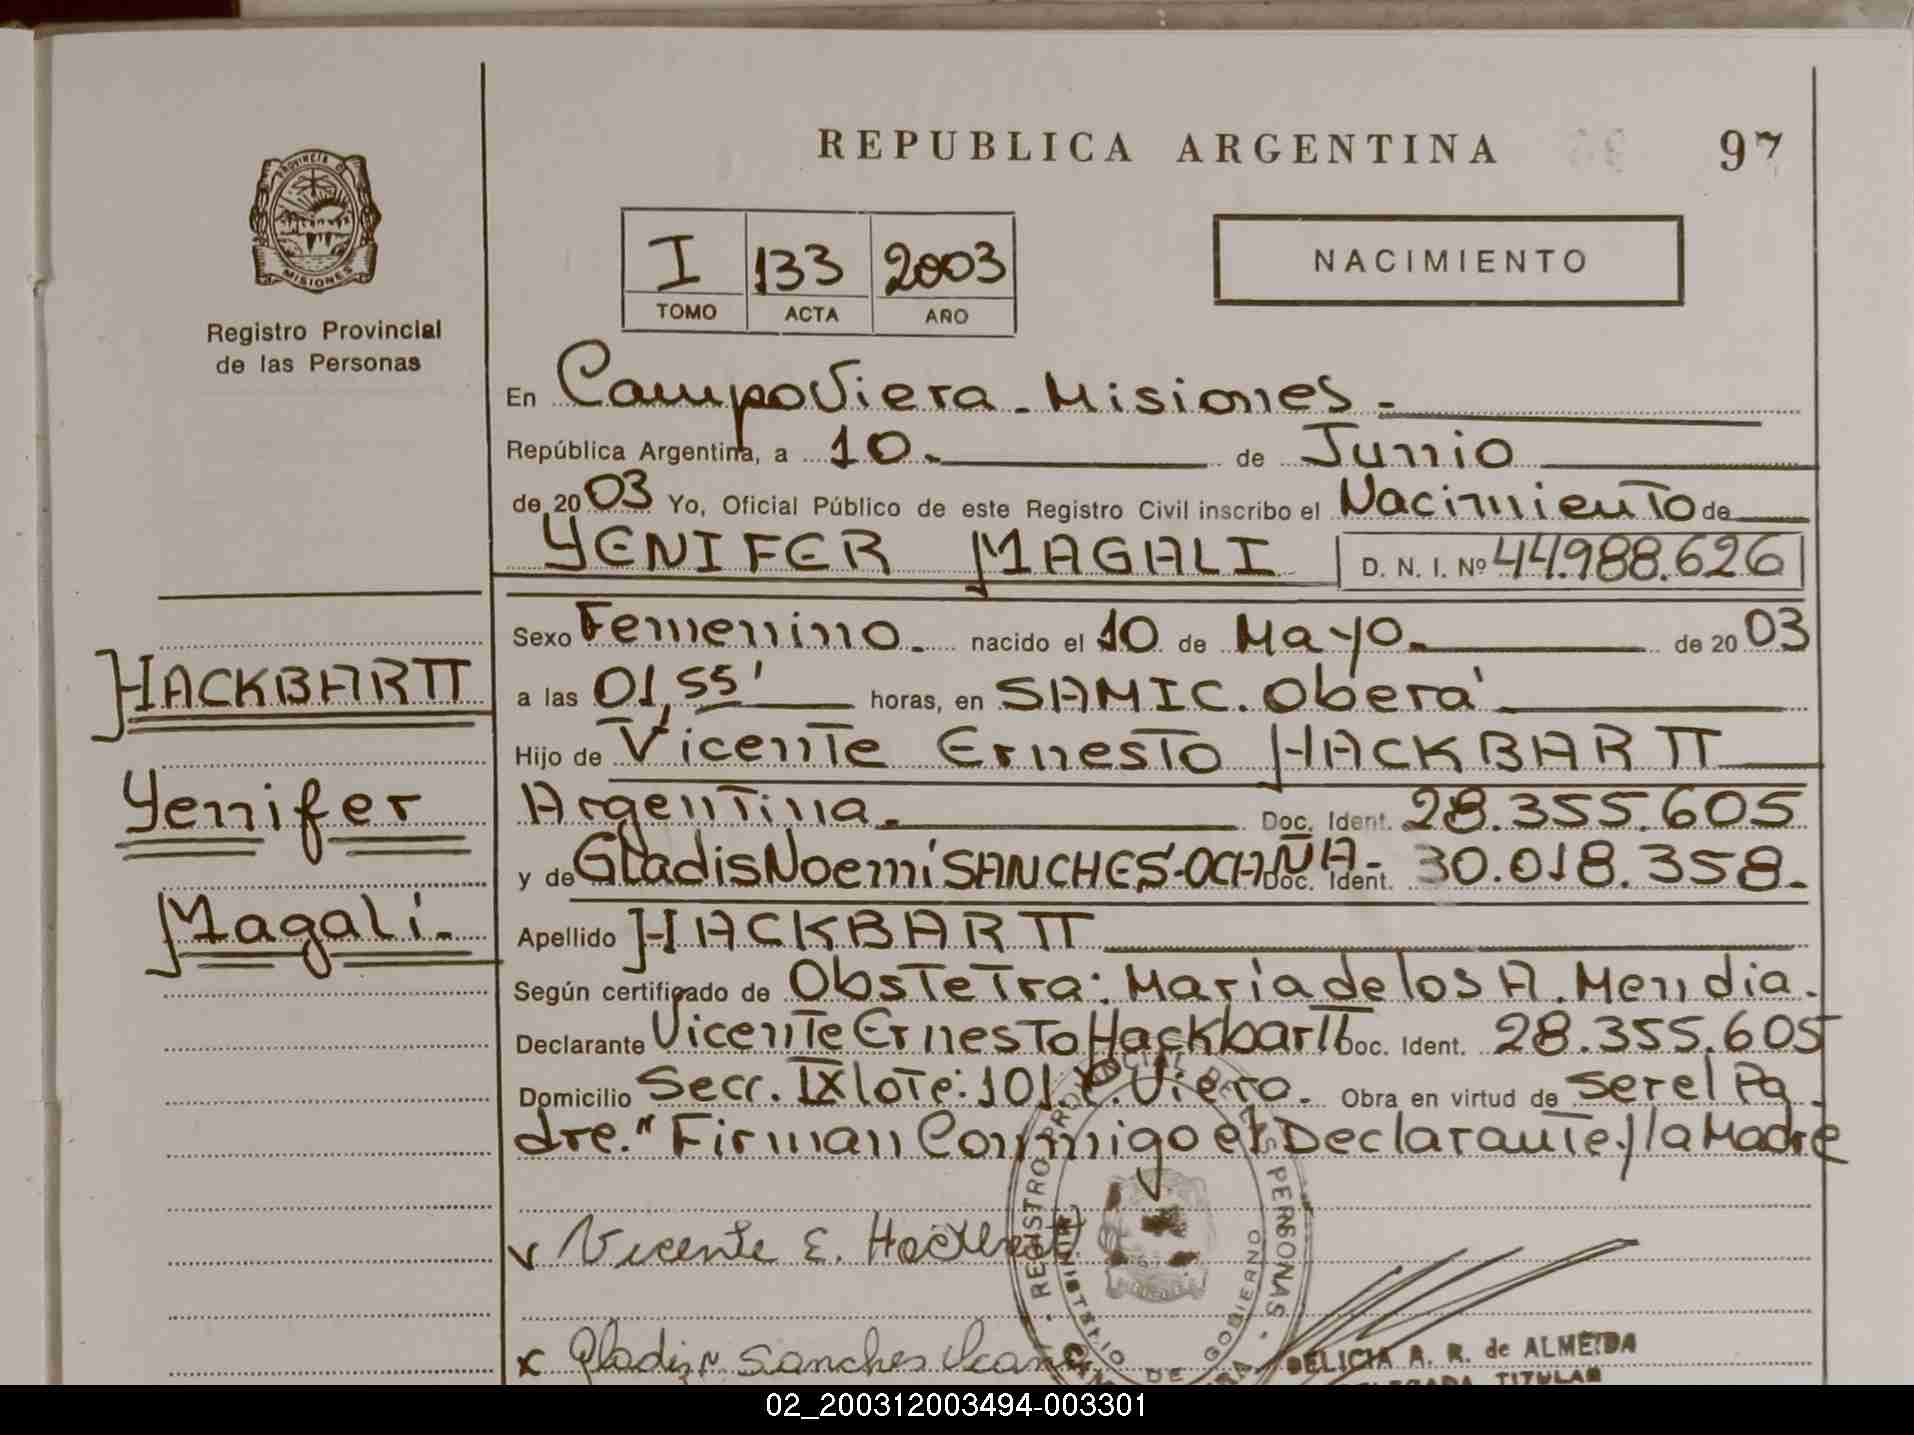 REPUBLICA ARGENTINA
97
PROVINCIA D
MISIONES
Registro Provincial
de las Personas
I 133 2003
TOMO ACTA AÑO
NACIMIENTO
En Campo Viera - Misiones -
República Argentina, a 10. de Junio
de 2003 Yo, Oficial Público de este Registro Civil inscribo el Nacimiento de
YENIFER MAGALI D. N. I. Nº 44.988.626
Sexo Femenino. nacido el 10 de Mayo. de 2003
a las 01,55' horas, en SAMIC. Oberá
Hijo de Vicente Ernesto HACKBARTT
Argentina. Doc. Ident. 28.355.605
y de Gladis Noemí SANCHES-OCAÑA- Doc. Ident. 30.018.358.
Apellido HACKBARTT
Según certificado de Obstetra: María de los A. Mendia.
Declarante Vicente Ernesto Hackbartt Doc. Ident. 28.355.605
Domicilio Secc. IX lote: 101. C. Viera. Obra en virtud de ser el Pa
dre." Firman Conmigo el Declarante y la Madre
HACKBARTT
Yenifer
Magali.
v Vicente E. Hackbartt
x Gladis N Sanches Ocaña
REGISTRO PROVINCIAL DE LAS PERSONAS
MINISTERIO DE GOBIERNO
DELICIA A. R. de ALMEIDA
DELEGADA TITULAR
02_200312003494-003301